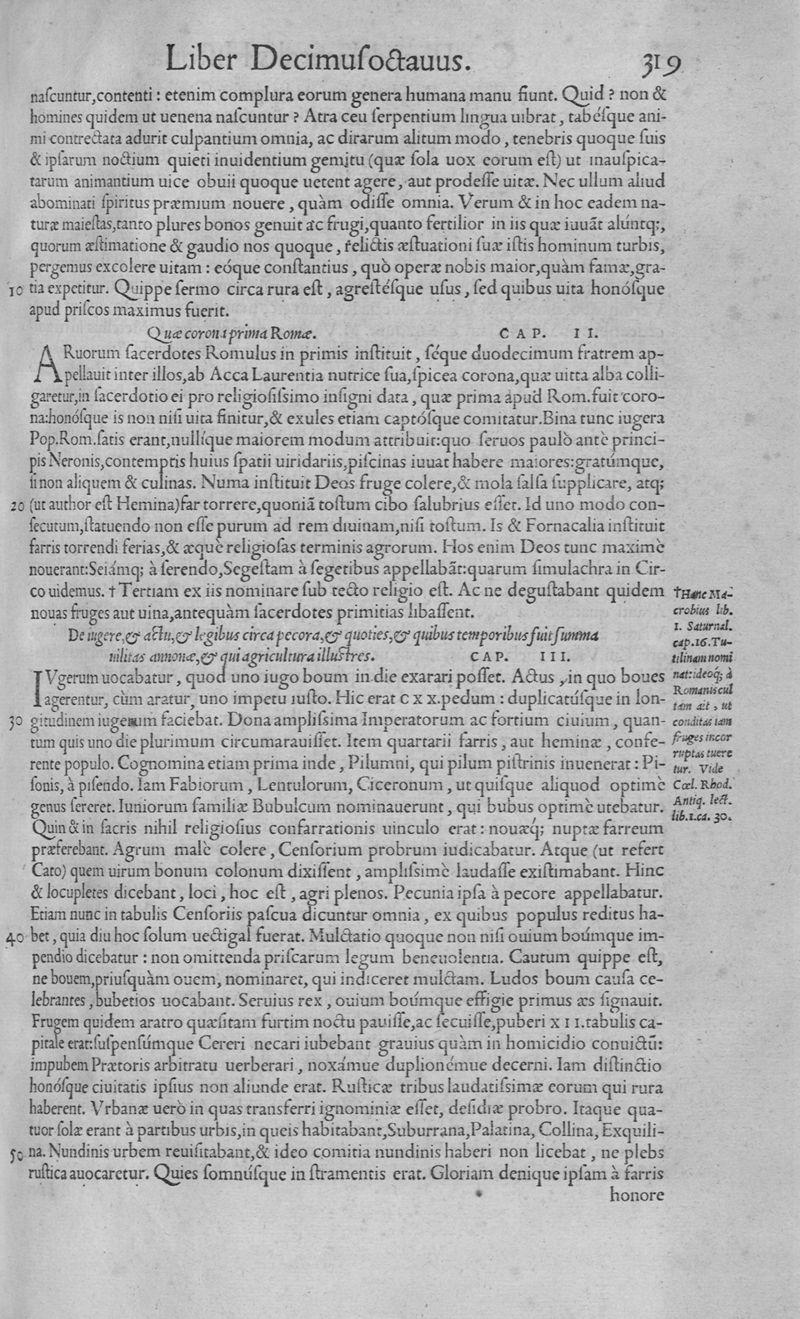 Liber Decimusoctauus. 319
naſcuntur,contenti : etenim complura eorum genera humana manu fiunt. Quid ? non &
homines quidem ut uenena naſcuntur ? Atra ceu ſerpentium lingua uibrat, tabéſque ani-
mi contrectata adurit culpantium omnia, ac dirarum alitum modo , tenebris quoque ſuis
& ipſarum noctium quieti inuidentium gemitu (quæ ſola uox eorum eſt) ut inauſpica-
tarum animantium uice obuii quoque uetent agere, aut prodeſſe uitæ. Nec ullum aliud
abominati ſpiritus præmium nouere , quàm odiſſe omnia. Verum & in hoc eadem na-
turæ maieſtas,tanto plures bonos genuit ac frugi,quanto fertilior in iis quæ iuuāt alúntq;,
quorum æſtimatione & gaudio nos quoque , relictis æſtuationi ſuæ iſtis hominum turbis,
pergemus excolere uitam : eóque conſtantius , quò operæ nobis maior,quàm famæ,gra-
10 tia expetitur. Quippe ſermo circa rura eſt , agreſtéſque uſus , ſed quibus uita honóſque
apud priſcos maximus fuerit.
Quæ corona prima Romæ. CAP. II.
ARuorum ſacerdotes Romulus in primis inſtituit , ſéque duodecimum fratrem ap-
pellauit inter illos,ab Acca Laurentia nutrice ſua,ſpicea corona,quæ uitta alba colli-
garetur,in ſacerdotio ei pro religioſiſsimo inſigni data , quæ prima apud Rom.fuit coro-
na:honóſque is non niſi uita finitur,& exules etiam captóſque comitatur.Bina tunc iugera
Pop.Rom.ſatis erant,nullíque maiorem modum attribuit:quo ſeruos paulò antè princi-
pis Neronis,contemptis huius ſpatii uiridariis,piſcinas iuuat habere maiores:gratúmque,
ſi non aliquem & culinas. Numa inſtituit Deos fruge colere,& mola ſalſa ſupplicare, atq;
20 (ut author eſt Hemina)far torrere,quoniā toſtum cibo ſalubrius eſſet. Id uno modo con-
ſecutum,ſtatuendo non eſſe purum ad rem diuinam,niſi toſtum. Is & Fornacalia inſtituit
farris torrendi ferias,& æquè religioſas terminis agrorum. Hos enim Deos tunc maximè
nouerant:Seiámq; à ſerendo,Segeſtam à ſegetibus appellabāt:quarum ſimulachra in Cir-
co uidemus. † Tertiam ex iis nominare ſub tecto religio eſt. Ac ne deguſtabant quidem
nouas fruges aut uina,antequàm ſacerdotes primitias libaſſent.
De iugere,& actu,& legibus circa pecora,& quoties,& quibus temporibus fuit ſumma
uilitas annonæ,& qui agricultura illuſtres. CAP. III.
IVgerum uocabatur , quod uno iugo boum in die exarari poſſet. Actus , in quo boues
agerentur, cùm aratur, uno impetu iuſto. Hic erat C X X.pedum : duplicatúſque in lon-
30 gitudinem iugerum faciebat. Dona ampliſsima Imperatorum ac fortium ciuium , quan-
tum quis uno die plurimum circumarauiſſet. Item quartarii farris , aut heminæ , confe-
rente populo. Cognomina etiam prima inde , Pilumni, qui pilum piſtrinis inuenerat : Pi-
ſonis, à piſendo. Iam Fabiorum , Lentulorum, Ciceronum , ut quiſque aliquod optimè
genus ſereret. Iuniorum familiæ Bubulcum nominauerunt , qui bubus optimè utebatur.
Quin & in ſacris nihil religioſius confarrationis uinculo erat : nouæq; nuptæ farreum
præferebant. Agrum malè colere , Cenſorium probrum iudicabatur. Atque (ut refert
Cato) quem uirum bonum colonum dixiſſent , ampliſsimè laudaſſe exiſtimabant. Hinc
& locupletes dicebant , loci , hoc eſt , agri plenos. Pecunia ipſa à pecore appellabatur.
Etiam nunc in tabulis Cenſoriis paſcua dicuntur omnia , ex quibus populus reditus ha-
40 bet , quia diu hoc ſolum uectigal fuerat. Mulctatio quoque non niſi ouium boúmque im-
pendio dicebatur : non omittenda priſcarum legum beneuolentia. Cautum quippe eſt,
ne bouem,priuſquàm ouem, nominaret, qui indiceret mulctam. Ludos boum cauſa ce-
lebrantes , bubetios uocabant. Seruius rex , ouium boúmque effigie primus æs ſignauit.
Frugem quidem aratro quæſitam furtim noctu pauiſſe,ac ſecuiſſe,puberi X I I.tabulis ca-
pitale erat:ſuſpenſúmque Cereri necari iubebant grauius quàm in homicidio conuictū:
impubem Prætoris arbitratu uerberari , noxámue duplionémue decerni. Iam diſtinctio
honóſque ciuitatis ipſius non aliunde erat. Ruſticæ tribus laudatiſsimæ eorum qui rura
haberent. Vrbanæ uerò in quas transferri ignominiæ eſſet, deſidiæ probro. Itaque qua-
tuor ſolæ erant à partibus urbis,in queis habitabant,Suburrana,Palatina, Collina, Exquili-
50 na. Nundinis urbem reuiſitabant,& ideo comitia nundinis haberi non licebat , ne plebs
ruſtica auocaretur. Quies ſomnúſque in ſtramentis erat. Gloriam denique ipſam à farris
honore
† Hanc Ma-
crobius lib.
1. Saturnal.
cap.16.Tu-
tilinam nomi
nat:ideoq; à
Romanis cul
tam ait , ut
conditas iam
fruges incor
ruptas tuere
tur. Vide
Cœl. Rhod.
Antiq. lect.
lib.1.ca. 30.